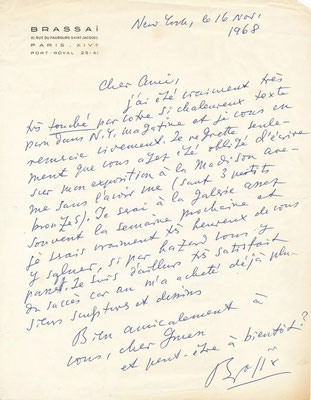 BRASSAÏ
81, RUE DU FAUBOURG SAINT-JACQUES
PARIS. XIVᵉ
PORT-ROYAL 23-41
New York, le 16 Nov. 1968
Cher Ami,
j'ai été vraiment très
très touché par votre si chaleureux texte
paru dans N.Y. magazine et je vous en
remercie vivement. Je regrette seule-
ment que vous ayez été obligé d'écrire
sur mon exposition à la Madison ave-
nue sans l'avoir vue (sauf 3 petits
bronzes). Je serai à la galerie assez
souvent la semaine prochaine et
je serais vraiment très heureux de vous
y saluer, si par hazard vous y
passez. Je suis d'ailleurs très satisfait
du succès car on m'a acheté déjà plu-
sieurs sculptures et dessins
Bien amicalement à
vous, cher
et peut-être à bientôt?
Brassaï